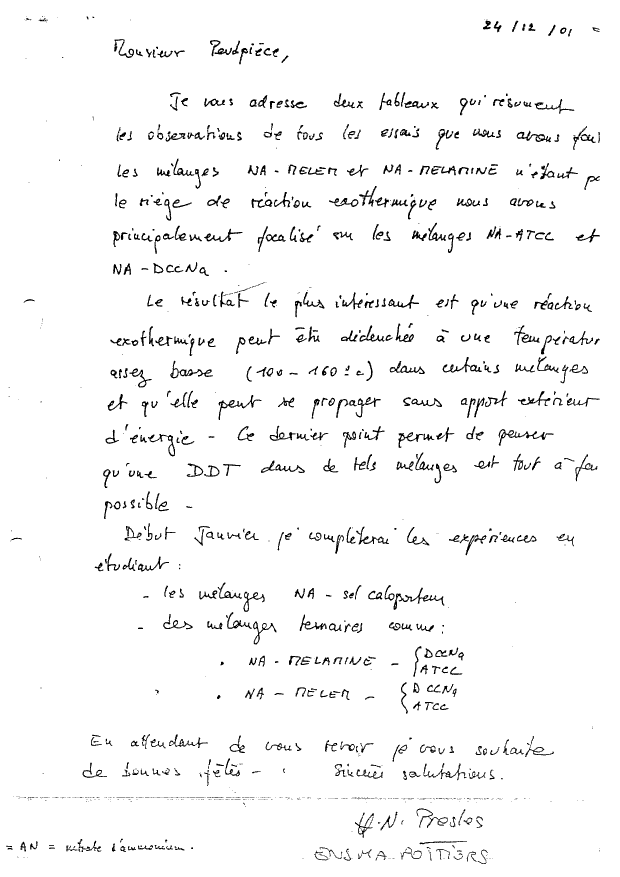 24/12/01 =
Monsieur Peudpièce,
Je vous adresse deux tableaux qui résument
les observations de tous les essais que nous avons fai
les mélanges NA-MELEM et NA-MELAMINE n'étant p
le siège de réaction exothermique nous avons
principalement focalisé sur les mélanges NA-ATCC et
NA-DCCNa.
Le résultat le plus intéressant est qu'une réaction
exothermique peut être déclenchée à une températur
assez basse (100-160°c) dans certains mélanges
et qu'elle peut se propager sans apport extérieur
d'énergie - Ce dernier point permet de penser
qu'une DDT dans de tels mélanges est tout à fai
possible -
Début Janvier je complèterai les expériences en
étudiant :
- les mélanges NA - sel caloporteur
- des mélanges ternaires comme :
. NA-MELAMINE - { DCCNa
ATCC
. NA-MELEM - { DCCNa
ATCC
En attendant de vous revoir je vous souhaite
de bonnes fêtes - Sincères salutations.
H.N. Presles
ENSMA POITIERS
= AN = nitrate d'ammonium.